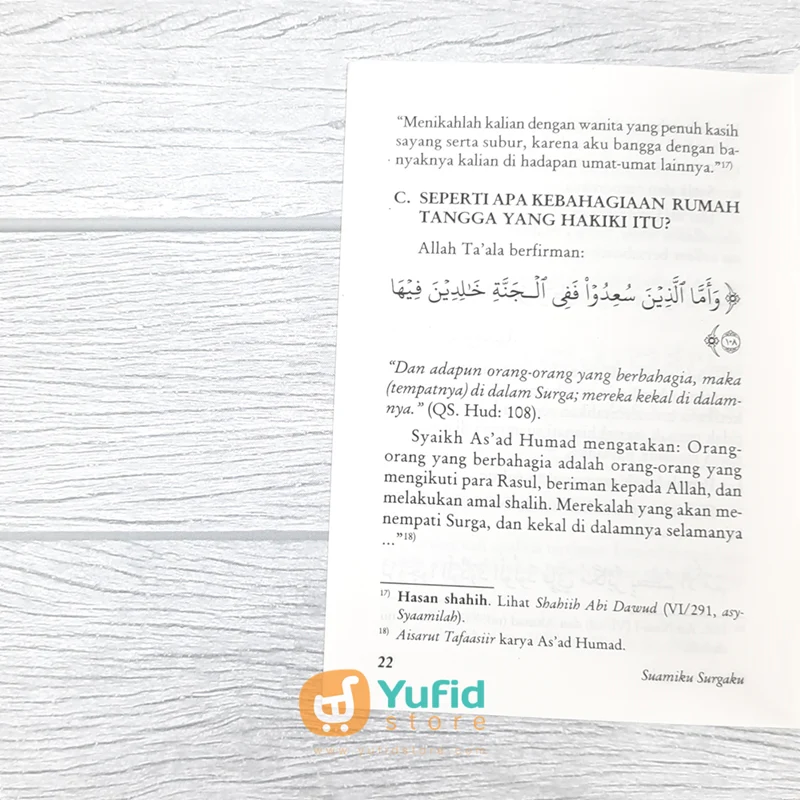 “Menikahlah kalian dengan wanita yang penuh kasih
sayang serta subur, karena aku bangga dengan ba-
nyaknya kalian di hadapan umat-umat lainnya.”17)
C. SEPERTI APA KEBAHAGIAAN RUMAH
TANGGA YANG HAKIKI ITU?
Allah Ta’ala berfirman:
﴿ وَأَمَّا ٱلَّذِينَ سُعِدُوا۟ فَفِى ٱلْجَنَّةِ خَٰلِدِينَ فِيهَا
١٠٨ ﴾
“Dan adapun orang-orang yang berbahagia, maka
(tempatnya) di dalam Surga; mereka kekal di dalam-
nya.” (QS. Hud: 108).
Syaikh As’ad Humad mengatakan: Orang-
orang yang berbahagia adalah orang-orang yang
mengikuti para Rasul, beriman kepada Allah, dan
melakukan amal shalih. Merekalah yang akan me-
nempati Surga, dan kekal di dalamnya selamanya
...”18)
17) Hasan shahih. Lihat Shahiih Abi Dawud (VI/291, asy-
Syaamilah).
18) Aisarut Tafaasiir karya As’ad Humad.
22
Suamiku Surgaku
Yufid
store